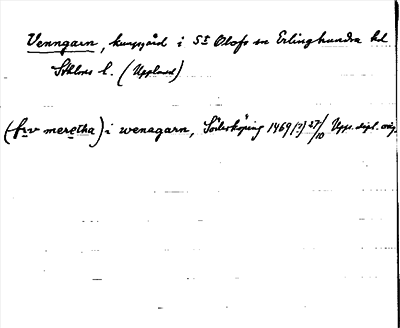 Venngarn, kungsgård i S:t Olofs sn Erlinghundra hd
Sthlms l. (Uppland)
(frv meretha) i wenagarn, Söderköping 1469 (?) 27/10 Upps. dipl. orig.